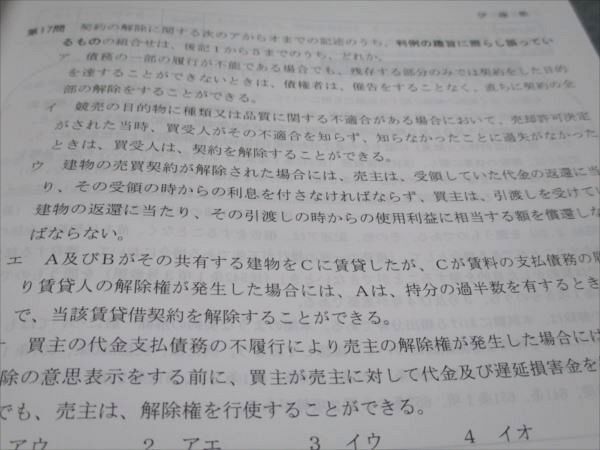 第17問 契約の解除に関する次のアからオまでの記述のうち、判例の趣旨に照らし誤ってい
るものの組合せは、後記1から5までのうち、どれか。
ア 債務の一部の履行が不能である場合でも、残存する部分のみでは契約をした目的
を達することができないときは、債権者は、催告をすることなく、直ちに契約の全
部の解除をすることができる。
イ 競売の目的物に種類又は品質に関する不適合がある場合において、売却許可決定
がされた当時、買受人がその不適合を知らず、知らなかったことに過失がなかった
ときは、買受人は、契約を解除することができる。
ウ 建物の売買契約が解除された場合には、売主は、受領していた代金の返還に当
り、その受領の時からの利息を付さなければならず、買主は、引渡しを受けてい
建物の返還に当たり、その引渡しの時からの使用利益に相当する額を償還しな
ばならない。
エ A及びBがその共有する建物をCに賃貸したが、Cが賃料の支払債務の
り賃貸人の解除権が発生した場合には、Aは、持分の過半数を有するとき
で、当該賃貸借契約を解除することができる。
買主の代金支払債務の不履行により売主の解除権が発生した場合には
除の意思表示をする前に、買主が売主に対して代金及び遅延損害金を
でも、売主は、解除権を行使することができる。
アウ 2 アエ 3 イウ 4 イオ